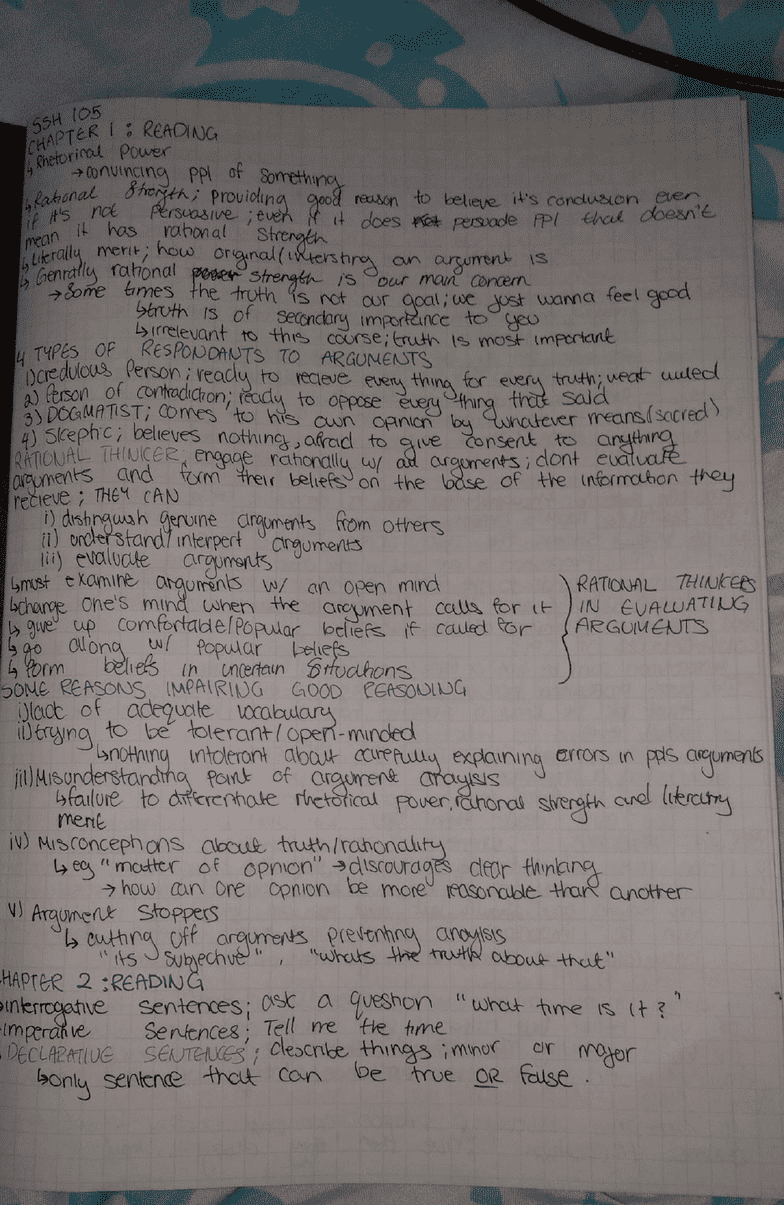 SSH 105
CHAPTER 1 : READING
↳ Rhetorical Power
→ convincing ppl of something
↳ Rational Strength; providing good reason to believe it's conclusion even
if it's not persuasive; even if it does not persuade ppl that doesn't
mean it has rational strength
↳ Literally merit; how original/intersting an argument is
↳ Genrally rational power strength is our main concern
→ Some times the truth is not our goal; we just wanna feel good
↳ truth is of secondary importance to you
↳ irrelevant to this course; truth is most important
4 TYPES OF RESPONDANTS TO ARGUMENTS
1) credulous Person; ready to recieve every thing for every truth; weak willed
2) Person of contradiction; ready to oppose every thing that said
3) DOGMATIST; comes to his own opinion by whatever means (sacred)
4) Skeptic; believes nothing, afraid to give consent to anything
RATIONAL THINKER; engage rationally w/ arguments; dont evaluate
arguments and form their beliefs on the base of the information they
recieve; THEY CAN
i) distinguish genuine arguments from others
ii) understand/interpert arguments
iii) evaluate arguments
↳ must examine arguments w/ an open mind
↳ change one's mind when the argument calls for it
↳ give up comfortable/popular beliefs if called for
↳ go along w/ popular beliefs
↳ form beliefs in uncertain situations
RATIONAL THINKERS
IN EVALUATING
ARGUMENTS
SOME REASONS IMPAIRING GOOD REASONING
i) lack of adequate vocabulary
ii) trying to be tolerant/open-minded
↳ nothing intolerant about carefully explaining errors in ppls arguments
iii) Misunderstanding point of argument anaylsis
↳ failure to differentiate rhetorical power, rational strength and literary
merit
iv) Misconceptions about truth/rationality
↳ eg "matter of opnion" → discourages clear thinking
→ how can one opnion be more reasonable than another
v) Argument Stoppers
↳ cutting off arguments preventing anaylsis
"its subjective", "whats the truth about that"
HAPTER 2 : READING
interrogative sentences; ask a question "what time is it?"
imperative sentences; Tell me the time
DECLARATIVE SENTENCES; describe things; minor or major
↳ only sentence that can be true OR false.